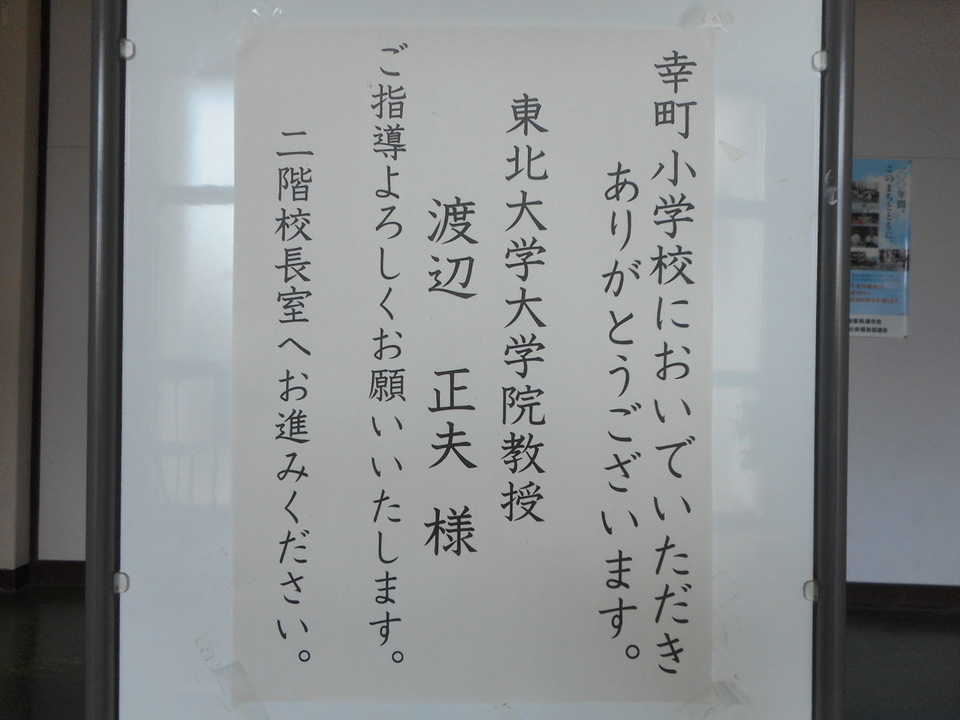 幸町小学校においでいただき
ありがとうございます。
東北大学大学院教授
渡辺 正夫 様
ご指導よろしくお願いいたします。
二階校長室へお進みください。
年間。
このまちとともに。